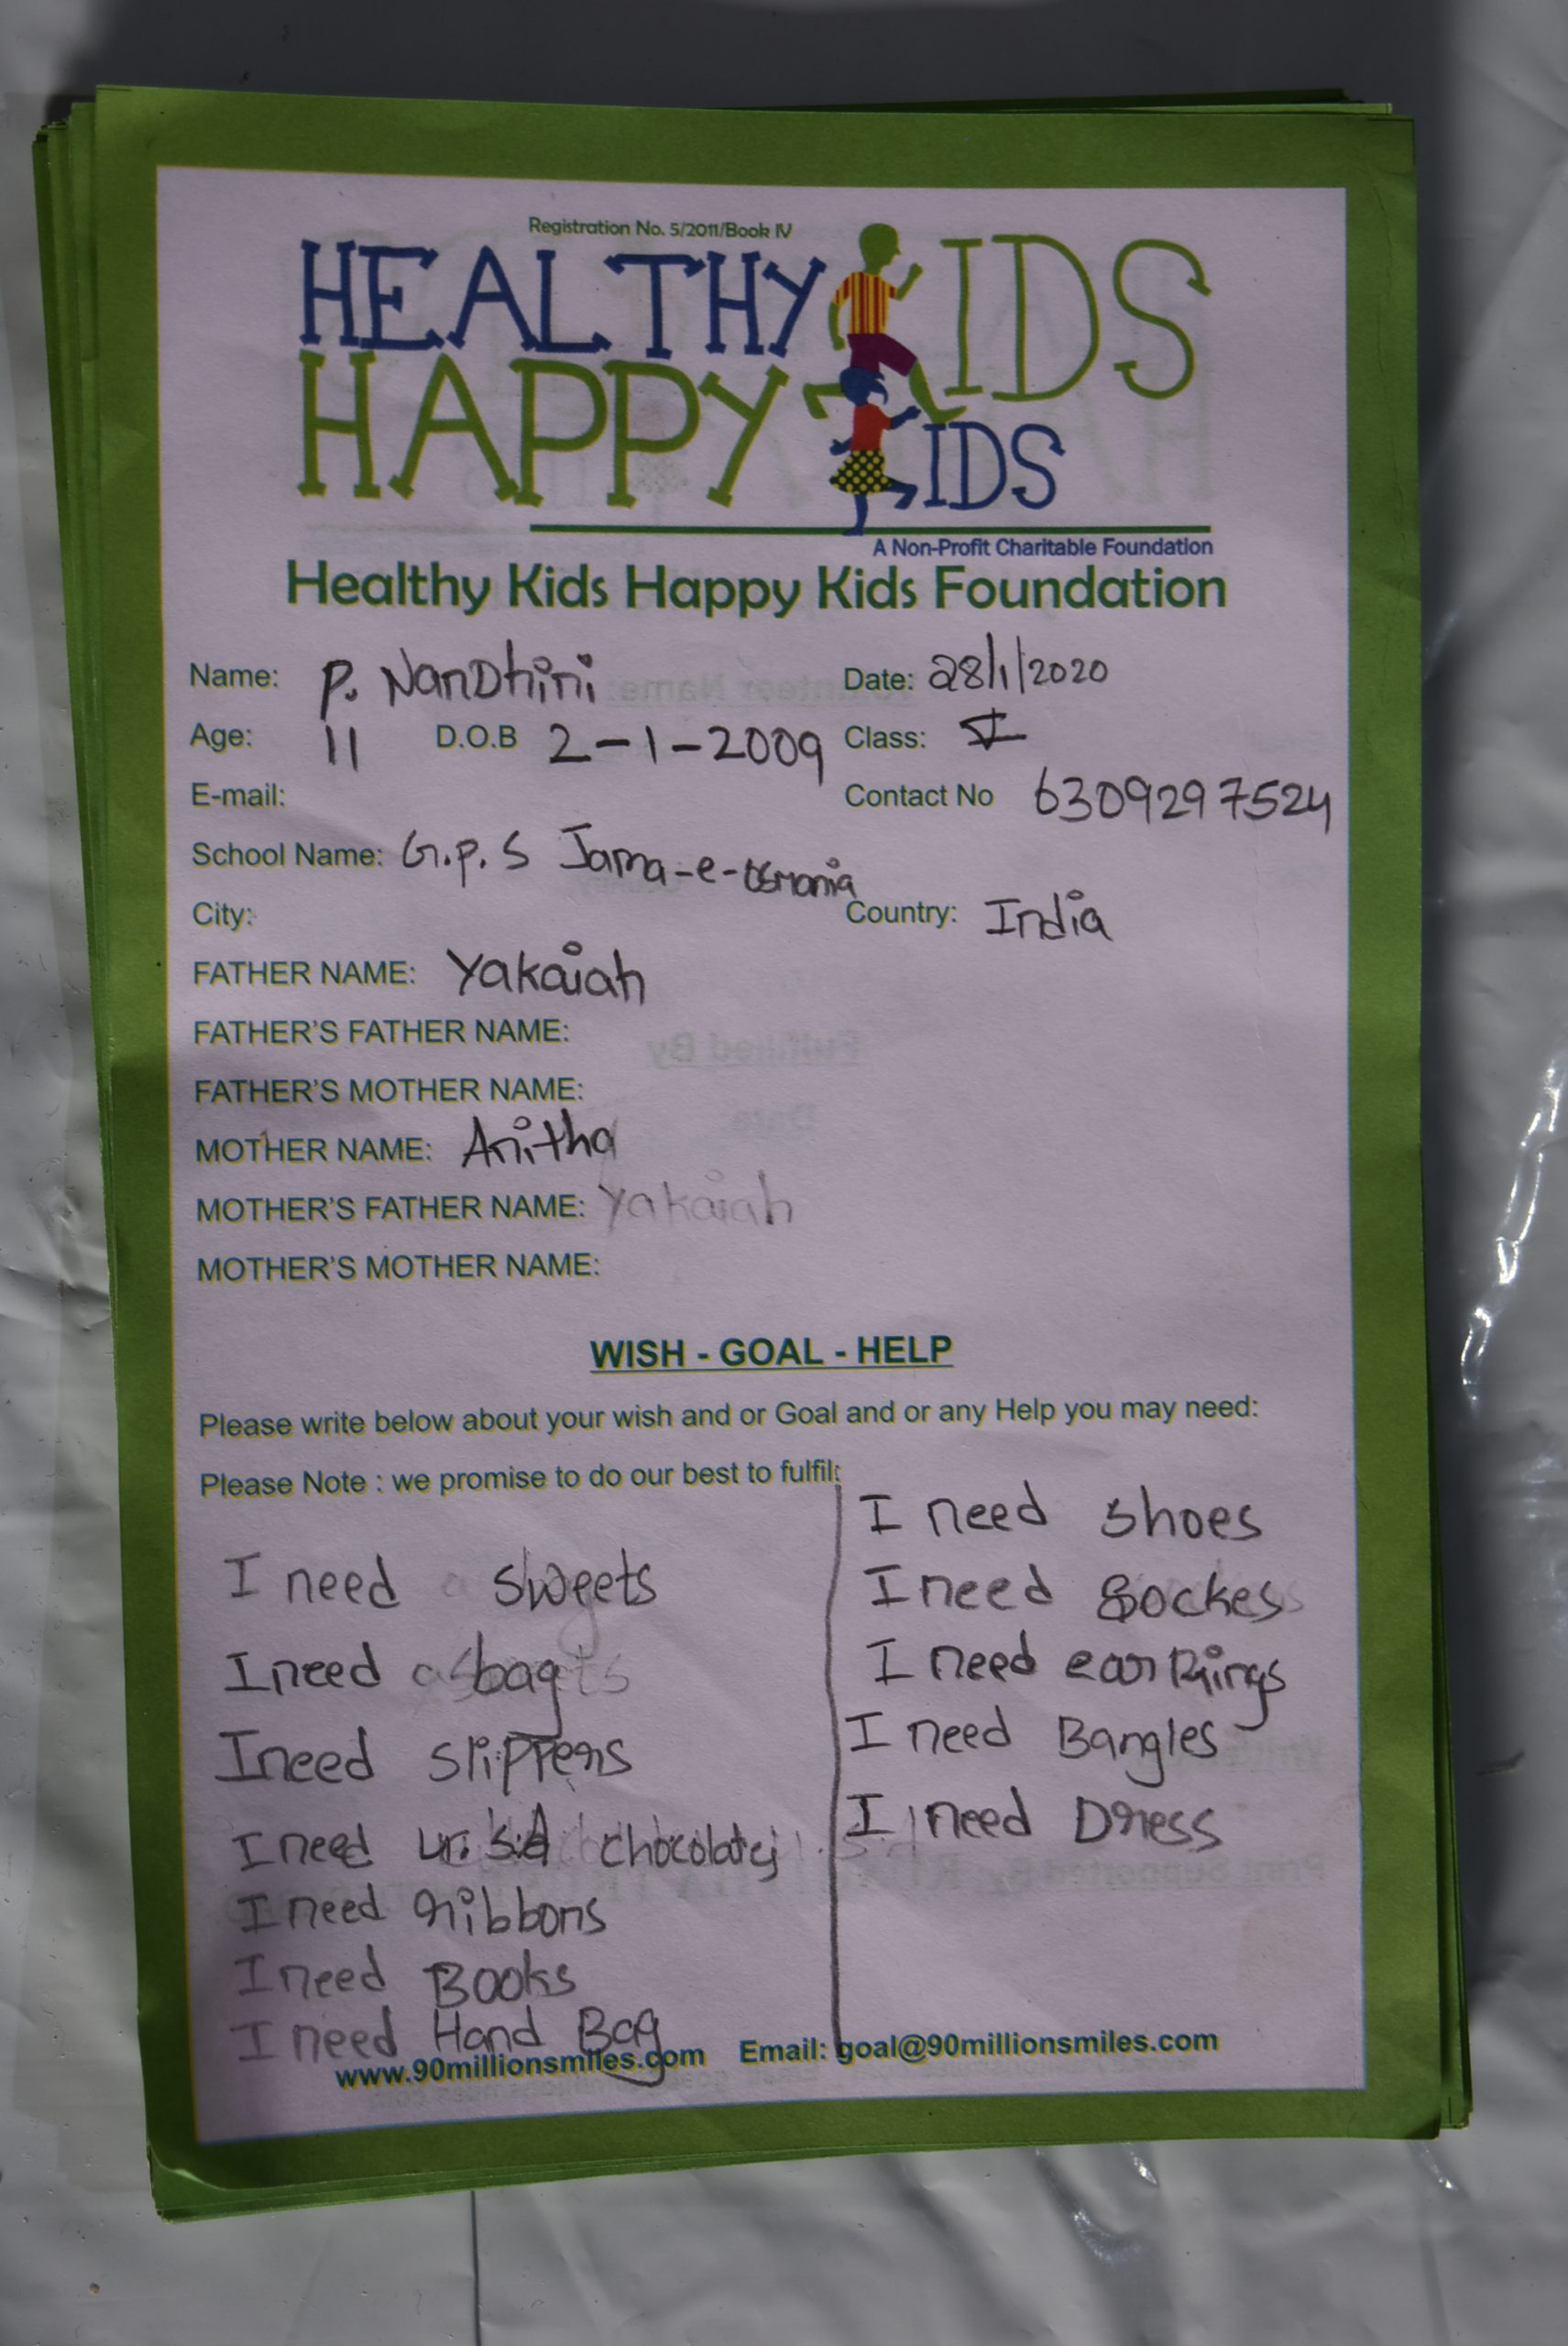 Registration No. 5/2011/Book IV
HEALTHY KIDS
HAPPY KIDS
A Non-Profit Charitable Foundation
Healthy Kids Happy Kids Foundation
Name: P. NanDhini Date: 28/1/2020
Age: 11 D.O.B 2-1-2009 Class: V
E-mail: Contact No 6309297524
School Name: G.P.S Jama-e-osmania
City: Country: India
FATHER NAME: Yakaiah
FATHER'S FATHER NAME:
FATHER'S MOTHER NAME:
MOTHER NAME: Anitha
MOTHER'S FATHER NAME: Yakaiah
MOTHER'S MOTHER NAME:
WISH - GOAL - HELP
Please write below about your wish and or Goal and or any Help you may need:
Please Note : we promise to do our best to fulfil:
I need sweets
I need bag
I need slippers
I need chocolates
I need ribbons
I need Books
I need Hand Bag
I need shoes
I need Sockes
I need earRings
I need Bangles
I need Dress
www.90millionsmiles.com Email: goal@90millionsmiles.com